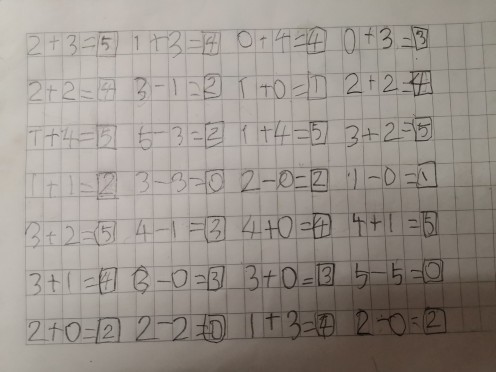 2+3=5 1+3=4 0+4=4 0+3=3
2+2=4 3-1=2 1+0=1 2+2=4
1+4=5 5-3=2 1+4=5 3+2=5
1+1=2 3-3=0 2-0=2 1-0=1
3+2=5 4-1=3 4+0=4 4+1=5
3+1=4 3-0=3 3+0=3 5-5=0
2+0=2 2-2=0 1+3=4 2-0=2